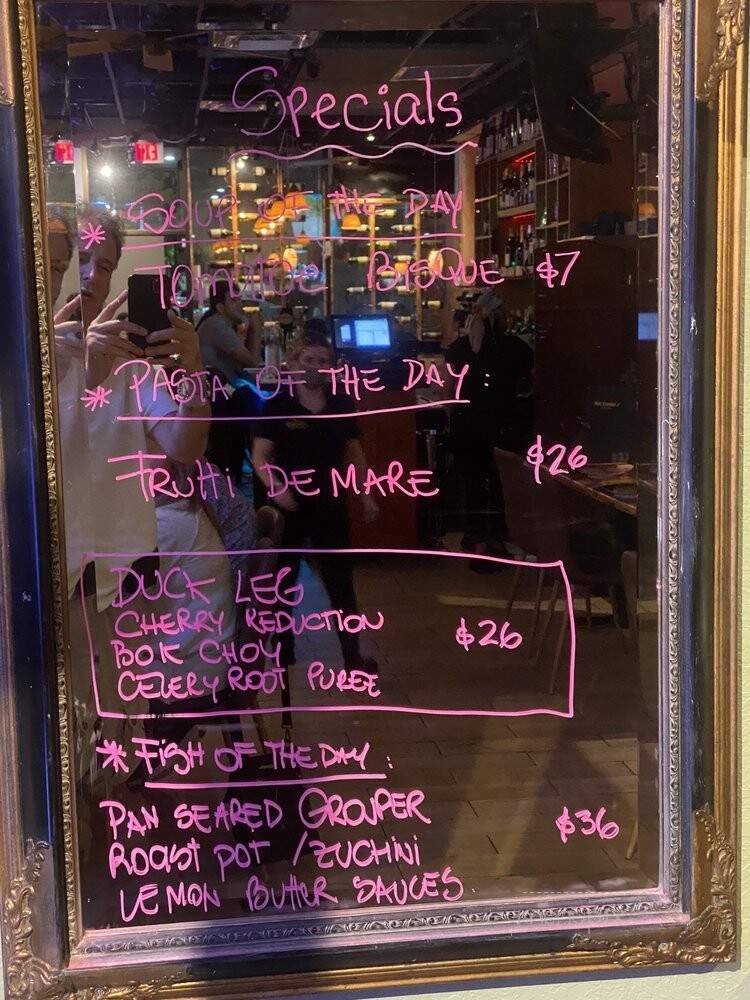 Specials
* SOUP OF THE DAY
TOMATOE BISQUE $7
* PASTA OF THE DAY :
FRUTTI DE MARE $26
DUCK LEG
CHERRY REDUCTION
BOK CHOY
CELERY ROOT PUREE
$26
* FISH OF THE DAY :
PAN SEARED GROUPER
ROAST POT / ZUCHINI
LEMON BUTTER SAUCES.
$36